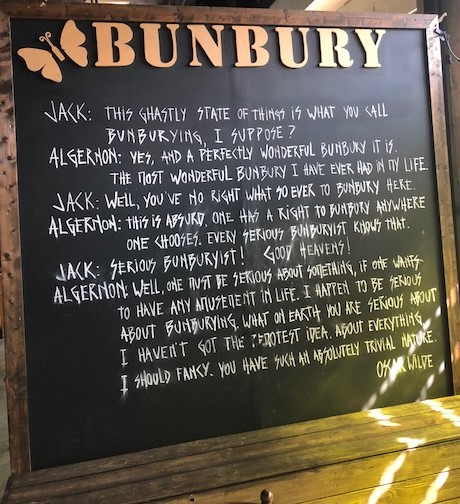 BUNBURY
JACK: THIS GHASTLY STATE OF THINGS IS WHAT YOU CALL
BUNBURYING, I SUPPOSE?
ALGERNON: YES, AND A PERFECTLY WONDERFUL BUNBURY IT IS.
THE MOST WONDERFUL BUNBURY I HAVE EVER HAD IN MY LIFE.
JACK: WELL, YOU'VE NO RIGHT WHAT SO EVER TO BUNBURY HERE.
ALGERNON: THIS IS ABSURD. ONE HAS A RIGHT TO BUNBURY ANYWHERE
ONE CHOOSES. EVERY SERIOUS BUNBURYIST KNOWS THAT.
JACK: SERIOUS BUNBURYIST! GOOD HEAVENS!
ALGERNON: WELL, ONE MUST BE SERIOUS ABOUT SOMETHING, IF ONE WANTS
TO HAVE ANY AMUSEMENT IN LIFE. I HAPPEN TO BE SERIOUS
ABOUT BUNBURYING. WHAT ON EARTH YOU ARE SERIOUS ABOUT
I HAVEN'T GOT THE REMOTEST IDEA. ABOUT EVERYTHING,
I SHOULD FANCY. YOU HAVE SUCH AN ABSOLUTELY TRIVIAL NATURE.
OSCAR WILDE